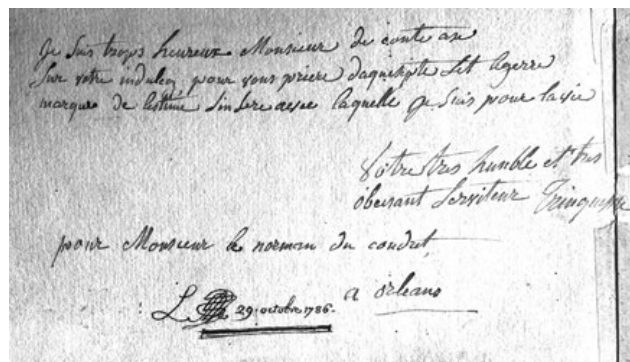 Je suis trops heureux Monsieur de conte are
sur votre indulcq pour vous priere daquepte set legerre
marque de lestime sinsere avec laquelle je suis pour la vie
Votre tres humble et tres
obeisant serviteur Trinquesse
pour Monsieur le norman du coudret
a orleans
L 29 octobre 1786.